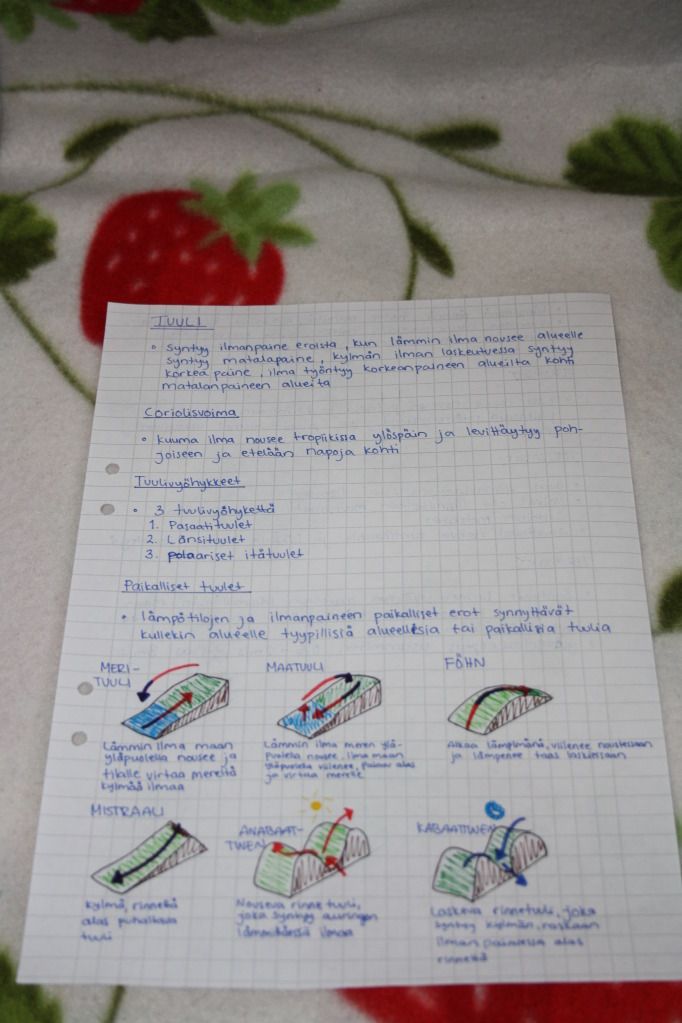 TUULI
• syntyy ilmanpaine eroista, kun lämmin ilma nousee alueelle
syntyy matalapaine, kylmän ilman laskeutuessa syntyy
korkea paine, ilma työntyy korkeanpaineen alueilta kohti
matalanpaineen alueita
Coriolisvoima
• kuuma ilma nousee tropiikissa ylöspäin ja levittäytyy poh-
joiseen ja etelään napoja kohti
Tuulivyöhykkeet
• 3 tuulivyöhykettä
1. Pasaatituulet
2. Länsituulet
3. polaariset itätuulet
Paikalliset tuulet
• lämpötilojen ja ilmanpaineen paikalliset erot synnyttävät
kullekin alueelle tyypillisiä alueellisia tai paikallisia tuulia
MERI-
TUULI
Lämmin ilma maan
yläpuolella nousee ja
tilalle virtaa mereltä
kylmää ilmaa
MAATUULI
Lämmin ilma meren ylä-
puolella nousee, ilma maan
yläpuolella viilenee, painuu alas
ja virtaa merelle
FÖHN
Alkaa lämpimänä, viilenee noustessaan
ja lämpenee taas laskiessaan
MISTRAALI
kylmä, rinnettä
alas puhaltava
tuuli
ANABAAT-
TINEN
Nouseva rinnetuuli,
joka syntyy auringon
lämmittäessä ilmaa
KABAATTINEN
Laskeva rinnetuuli, joka
syntyy kylmän, raskaan
ilman painuessa alas
rinnettä